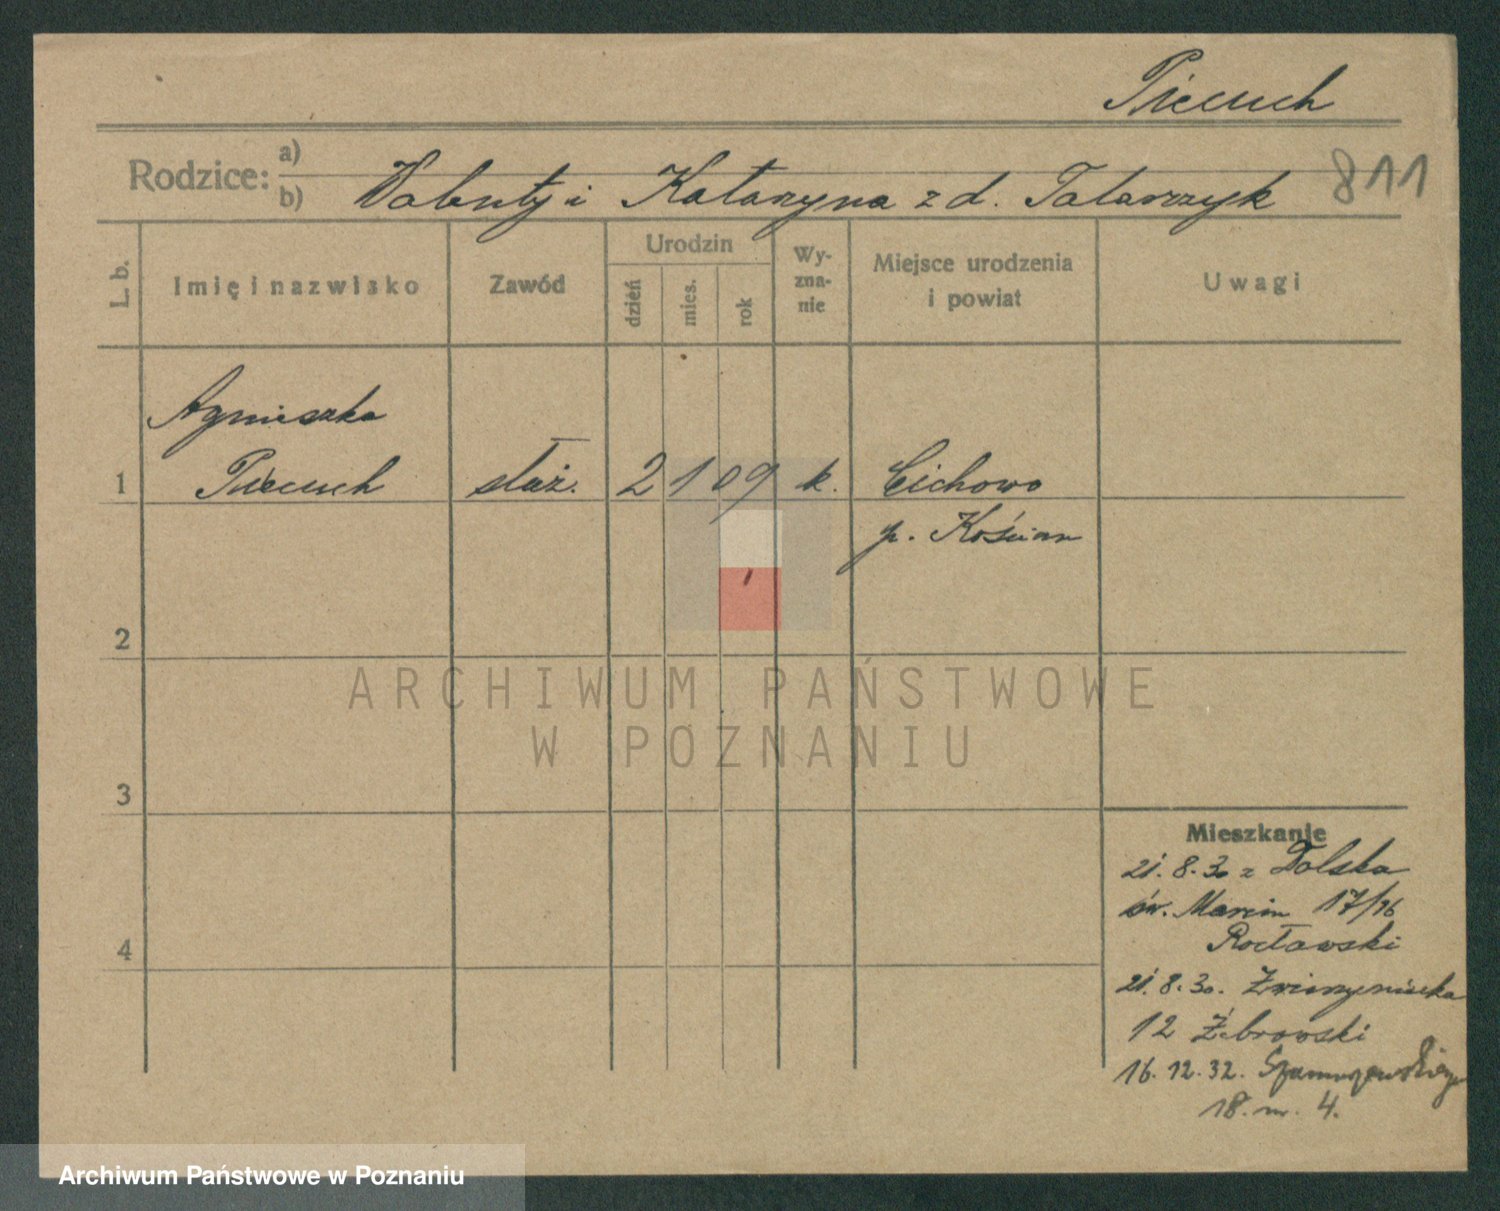 Piecuch
Rodzice: a)
b) Walenty i Katarzyna z d. Tatarzyk 811
L. b. Imię i nazwisko Zawód Urodzin dzień mies. rok Wy-zna-nie Miejsce urodzenia i powiat Uwagi
Agnieszka
1 Piecuch służ. 2 1 09 k. Cichowo
p. Kościan
2
ARCHIWUM PAŃSTWOWE
W POZNANIU
3
Mieszkanie
21.8.30 z Dolska
św. Marcin 17/16
4
21.8.30. Zwierzyniecka
12 Żebrowski
16.12.32. Szamarzewskiego
18. m. 4.
Archiwum Państwowe w Poznaniu